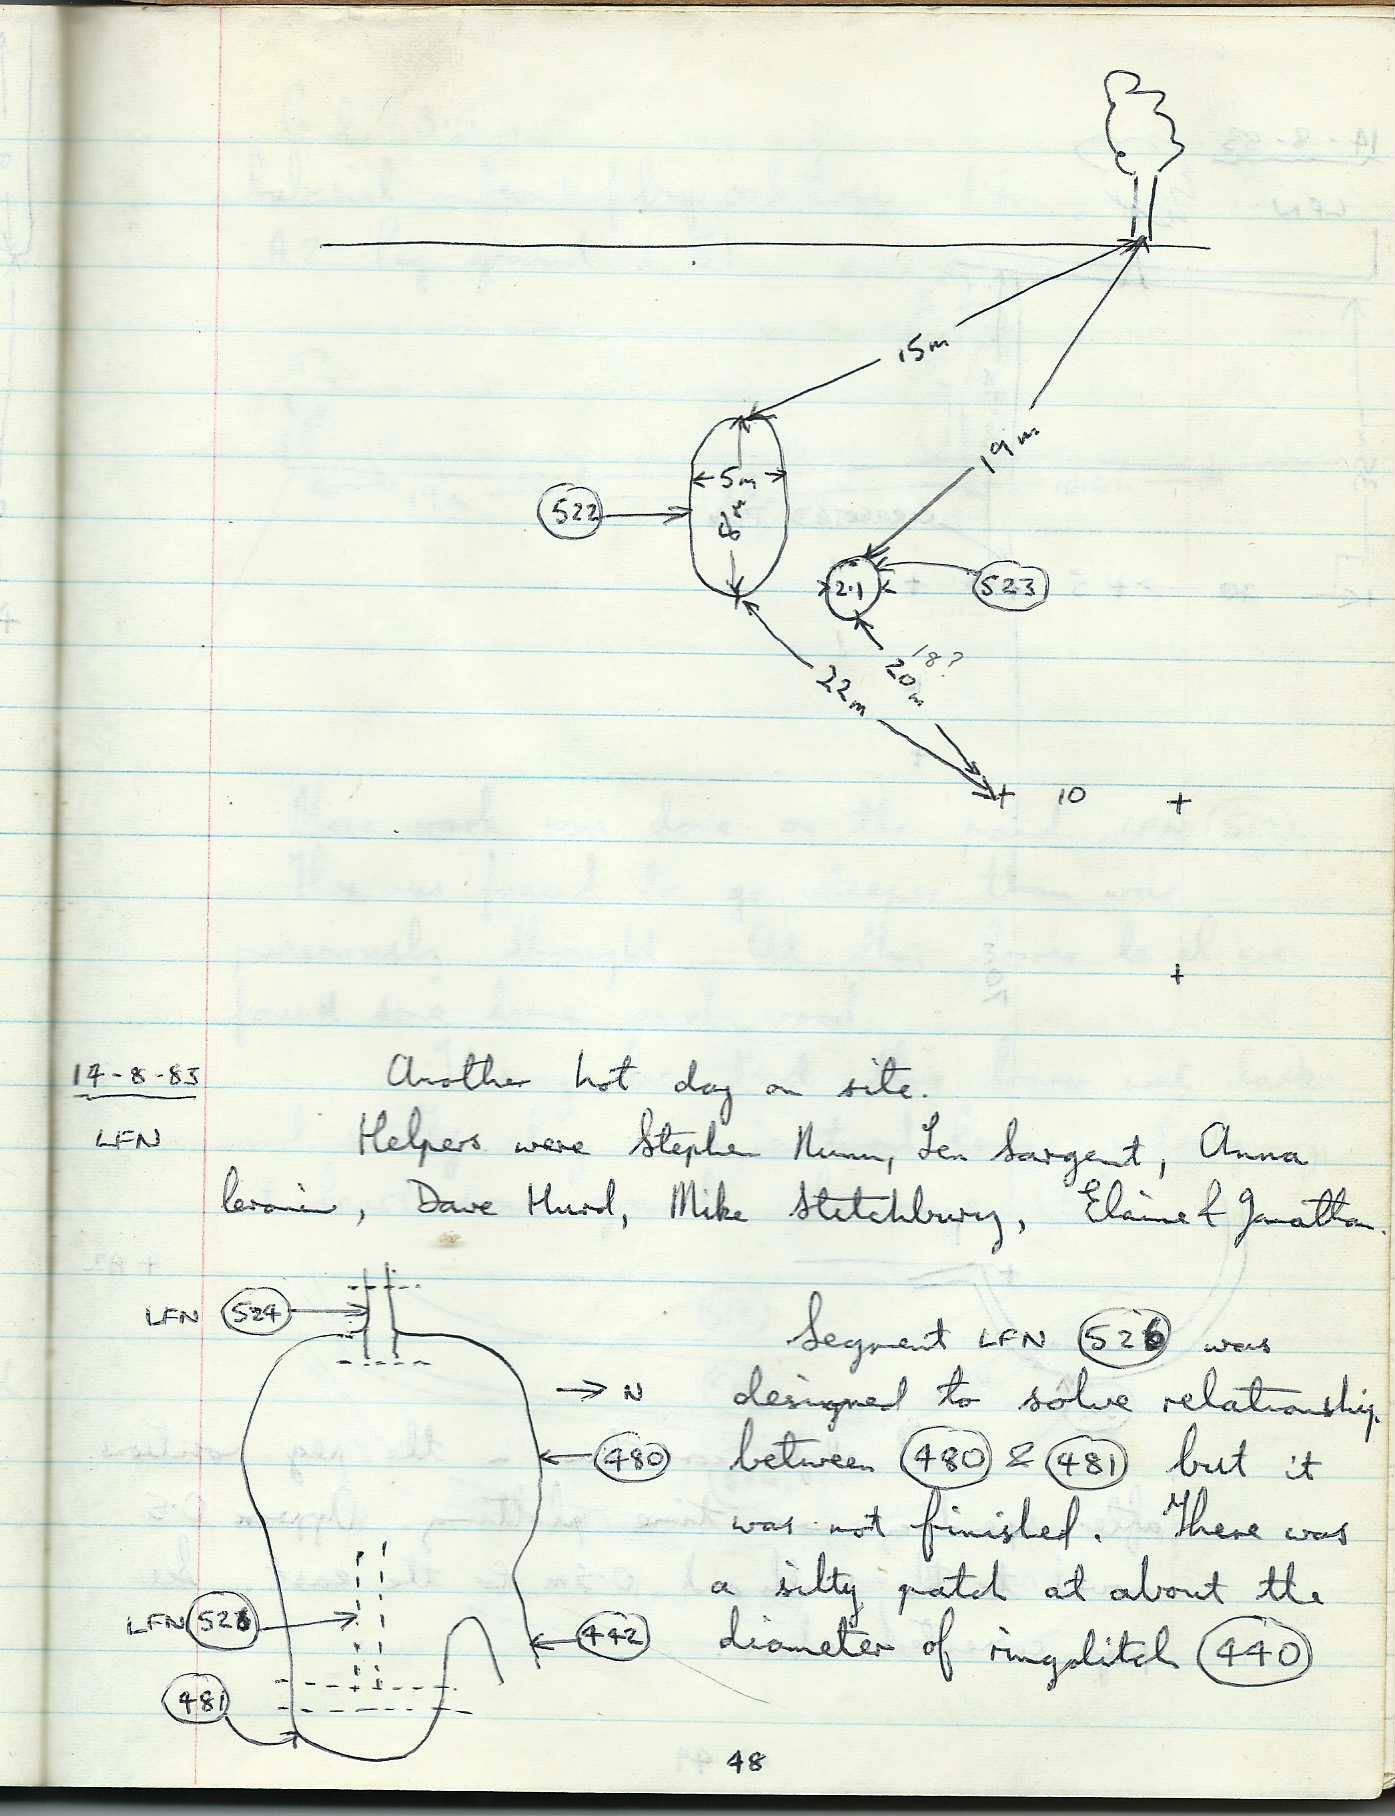 15m
19m
5m
8m
522
2.1
523
18?
20m
22m
+ 10 +
+
14-8-83 Another hot day on site.
LFN Helpers were Stephen Nunn, Len Sargent, Anna
, Dave Hurd, Mike Stitchbury, Elaine & Jonathan.
LFN 524
Segment LFN 526 was
→ N designed to solve relationship
480 between 480 & 481 but it
was not finished. There was
a silty patch at about the
LFN 526
442 diameter of ringditch 440
481
48